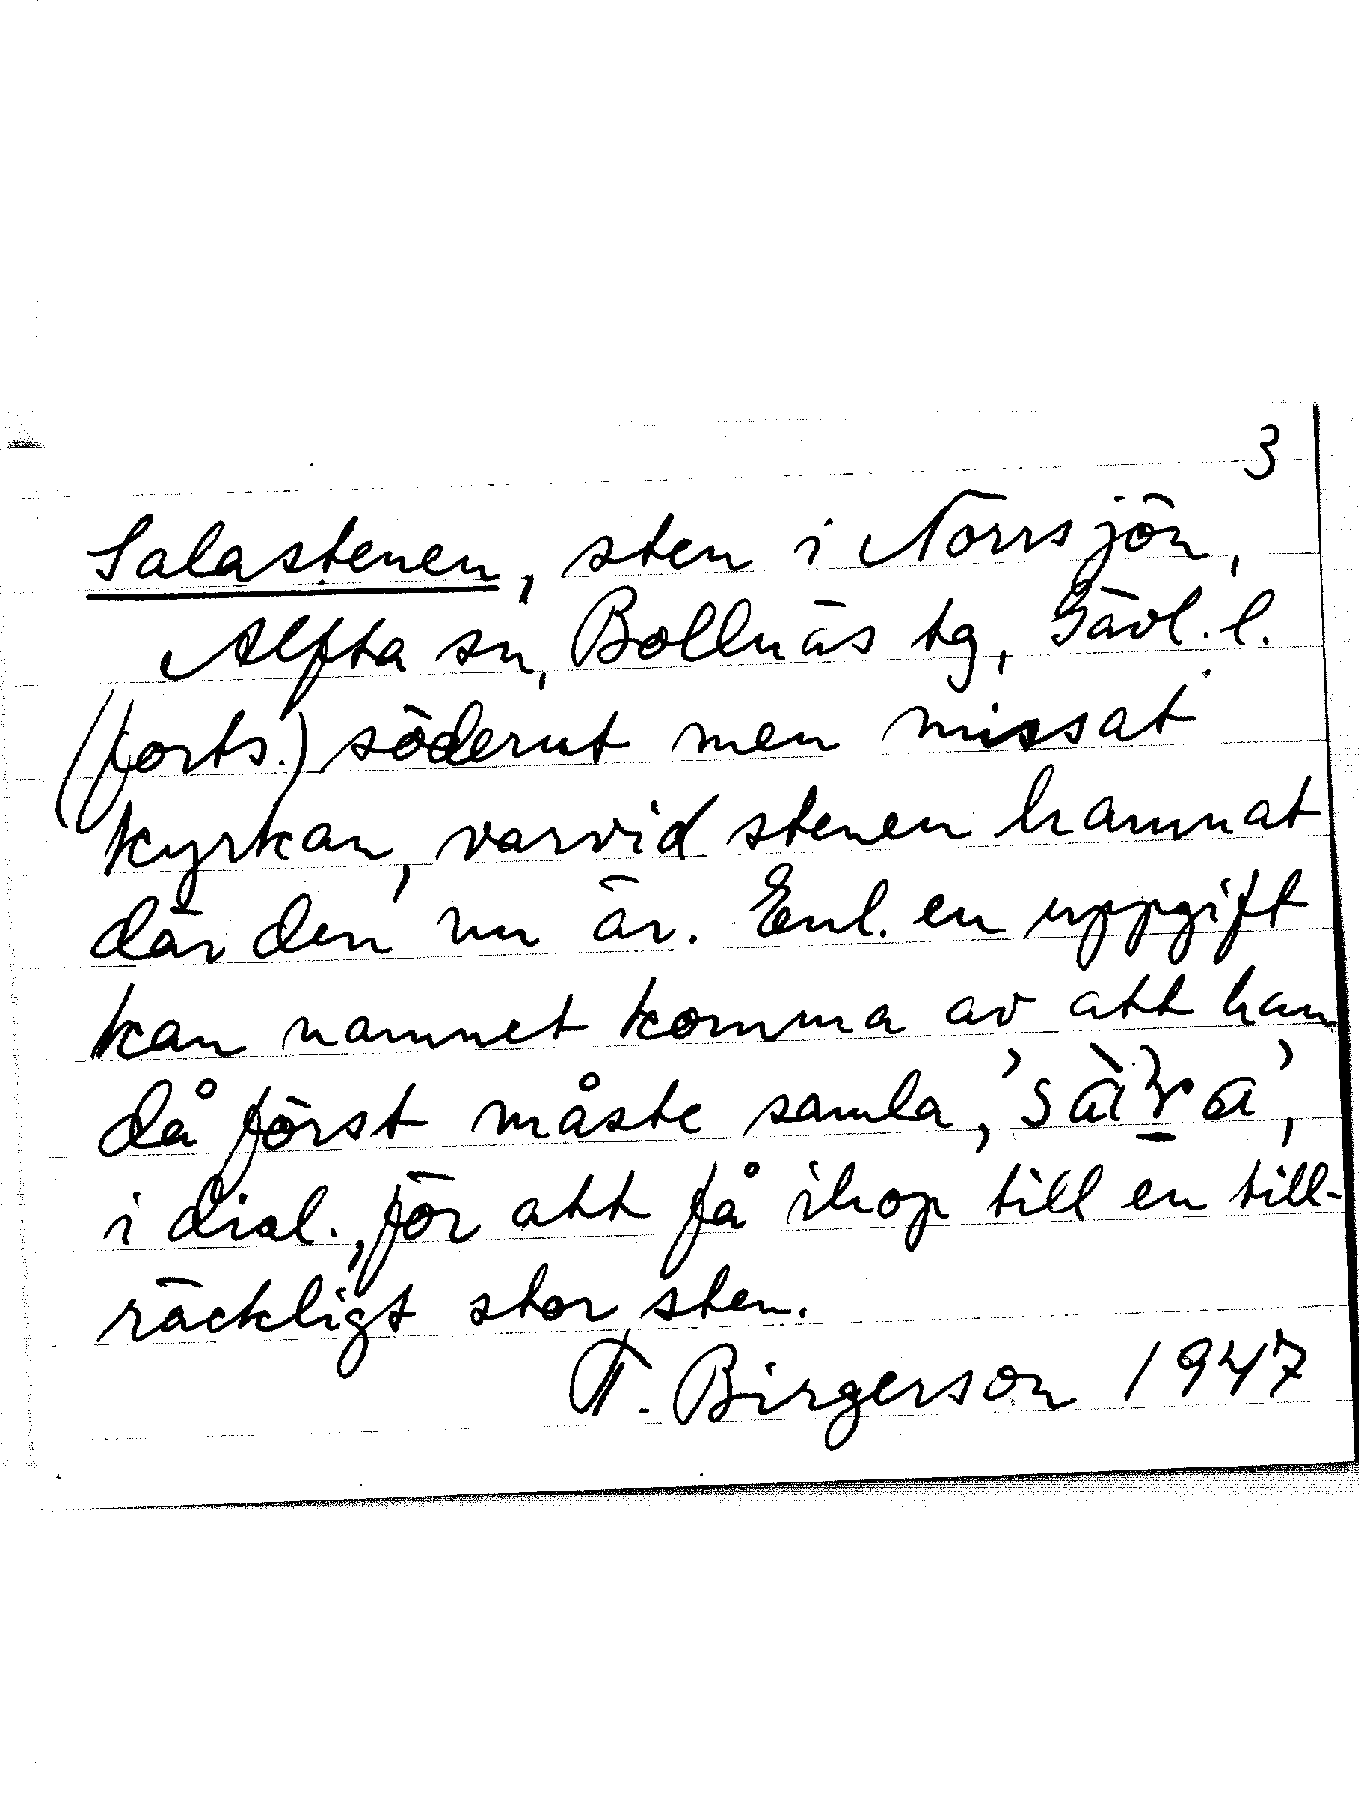 3
Salastenen, sten i Norrsjön,
Alfta sn, Bollnäs tg, Gävl. l.
(forts.) söderut men missat
kyrkan, varvid stenen hamnat
där den nu är. Enl. en uppgift
kan namnet komma av att han
då först måste samla,
i dial., för att få ihop till en till-
räckligt stor sten.
T. Birgerson 1947